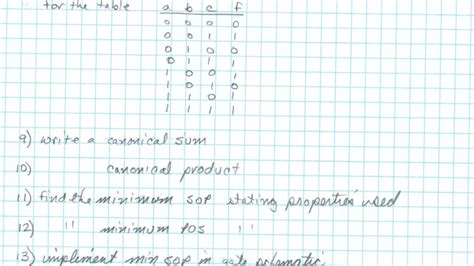 for the table a b c f
0 0 0 0
0 0 1 1
0 1 0 0
0 1 1 1
1 0 0 1
1 0 1 0
1 1 0 1
1 1 1 1
9) write a canonical sum
10) canonical product
11) find the minimum SOP stating properties used
12) " minimum POS " "
13) implement min SOP in gate schematic